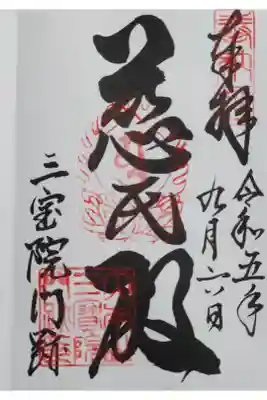 奉拝
令和五年
九月六日
慈氏殿
三宝院門跡